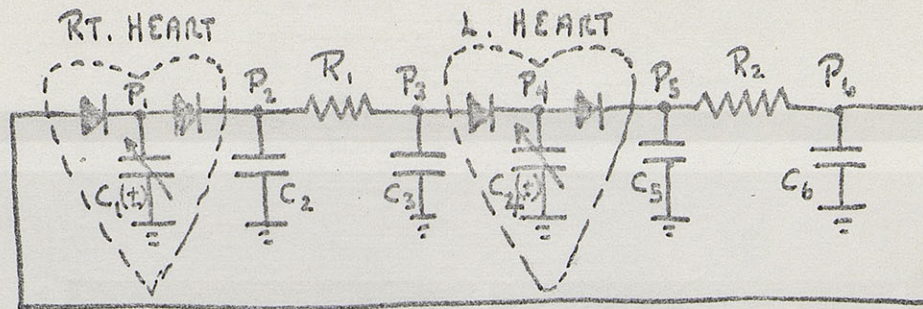 RT. HEART
L. HEART
P₁ P₂ R₁ P₃ P₄ P₅ R₂ P₆
C₁(t) C₂ C₃ C₄(t) C₅ C₆